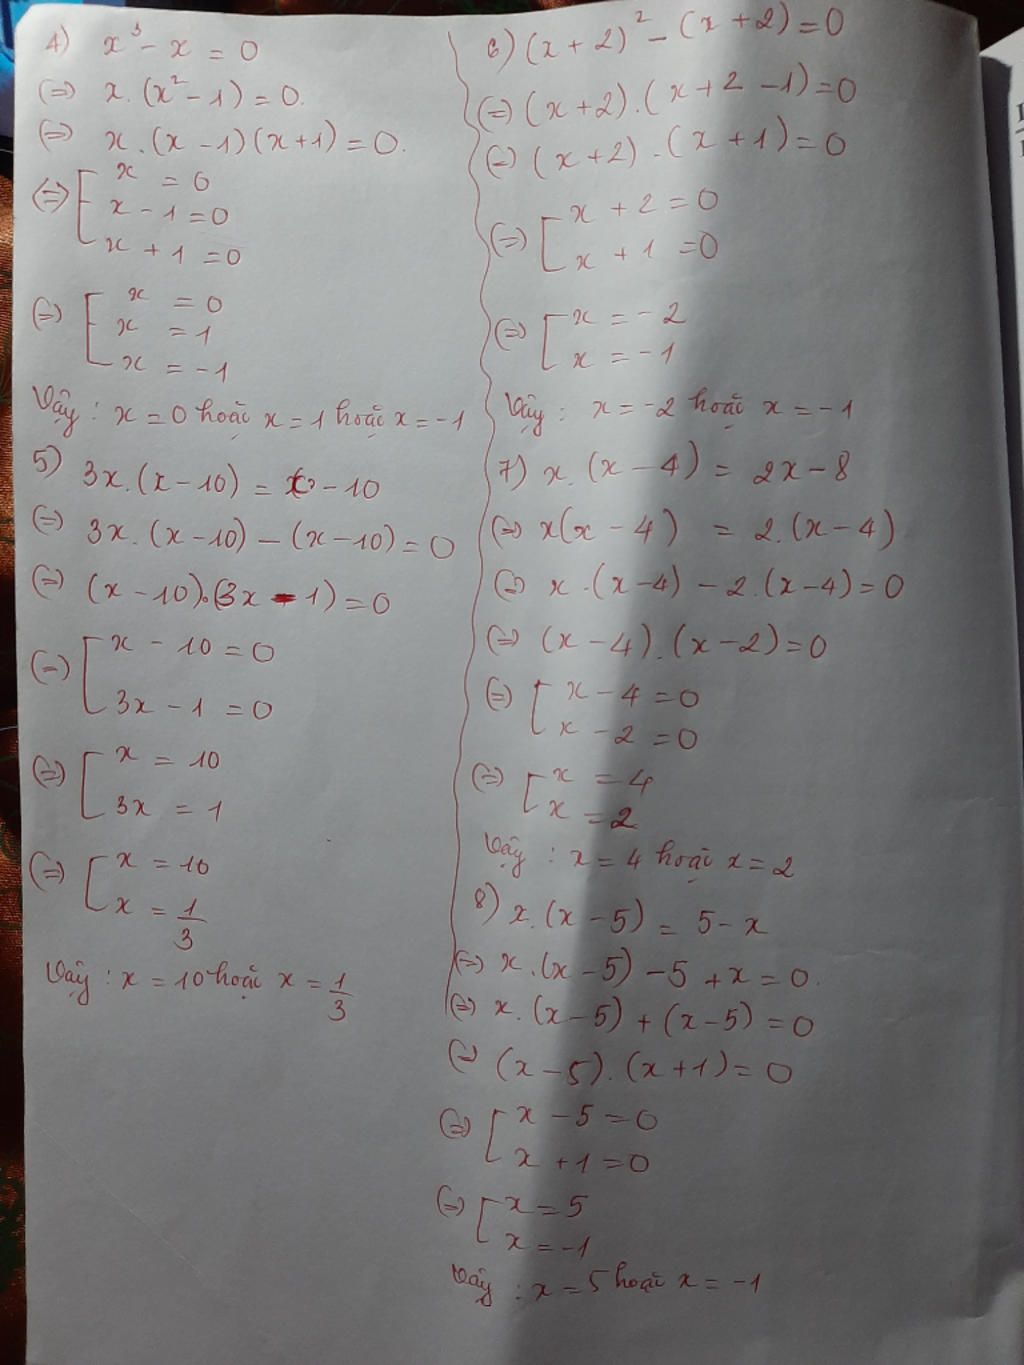 4) x³ - x = 0
(=) x.(x² - 1) = 0.
(=) x.(x - 1)(x+1) = 0.
(=) [ x = 0
x - 1 = 0
x + 1 = 0
(=) [ x = 0
x = 1
x = -1
Vậy : x = 0 hoặc x = 1 hoặc x = -1
5) 3x.(x - 10) = x - 10
(=) 3x.(x - 10) - (x - 10) = 0
(=) (x - 10).(3x - 1) = 0
(=) [ x - 10 = 0
3x - 1 = 0
(=) [ x = 10
3x = 1
(=) [ x = 10
x = 1/3
Vậy : x = 10 hoặc x = 1/3
6) (x + 2)² - (x + 2) = 0
(=) (x+2).(x+2 - 1) = 0
(=) (x+2).(x + 1) = 0
(=) [ x + 2 = 0
x + 1 = 0
(=) [ x = -2
x = -1
Vậy : x = -2 hoặc x = -1
7) x.(x - 4) = 2x - 8
(=) x(x - 4) = 2.(x - 4)
(=) x.(x - 4) - 2.(x - 4) = 0
(=) (x - 4).(x - 2) = 0
(=) [ x - 4 = 0
x - 2 = 0
(=) [ x = 4
x = 2
Vậy : x = 4 hoặc x = 2
8) x.(x - 5) = 5 - x
(=) x.(x - 5) - 5 + x = 0.
(=) x.(x - 5) + (x - 5) = 0
(=) (x - 5).(x + 1) = 0
(=) [ x - 5 = 0
x + 1 = 0
(=) [ x = 5
x = -1
Vậy : x = 5 hoặc x = -1